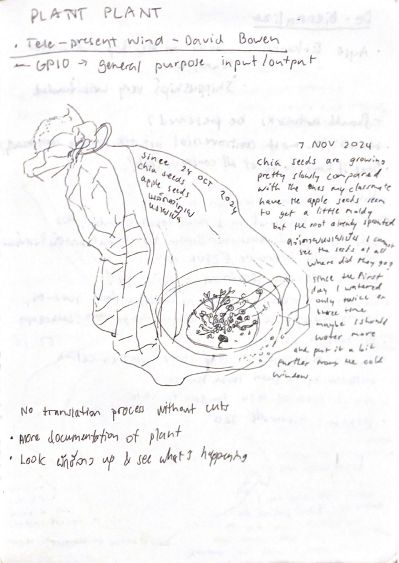 PLANT PLANT
• Tele-present wind - David Bowen
- GPIO → general purpose input/output
since 24 OCT 2024
chia seeds
apple seeds
7 NOV 2024
chia seeds are growing
pretty slowly compared
with the ones my classmate
have the apple seeds seem
to get a little moldy
but the root already sprouted
I cannot
see the seeds at all
where did they go?
since the first
day I watered
only twice or
three time
maybe I should
water more
and put it a bit
further from the cold
window.
No translation process without cuts
• More documentation of plant
• Look up & see what's happening